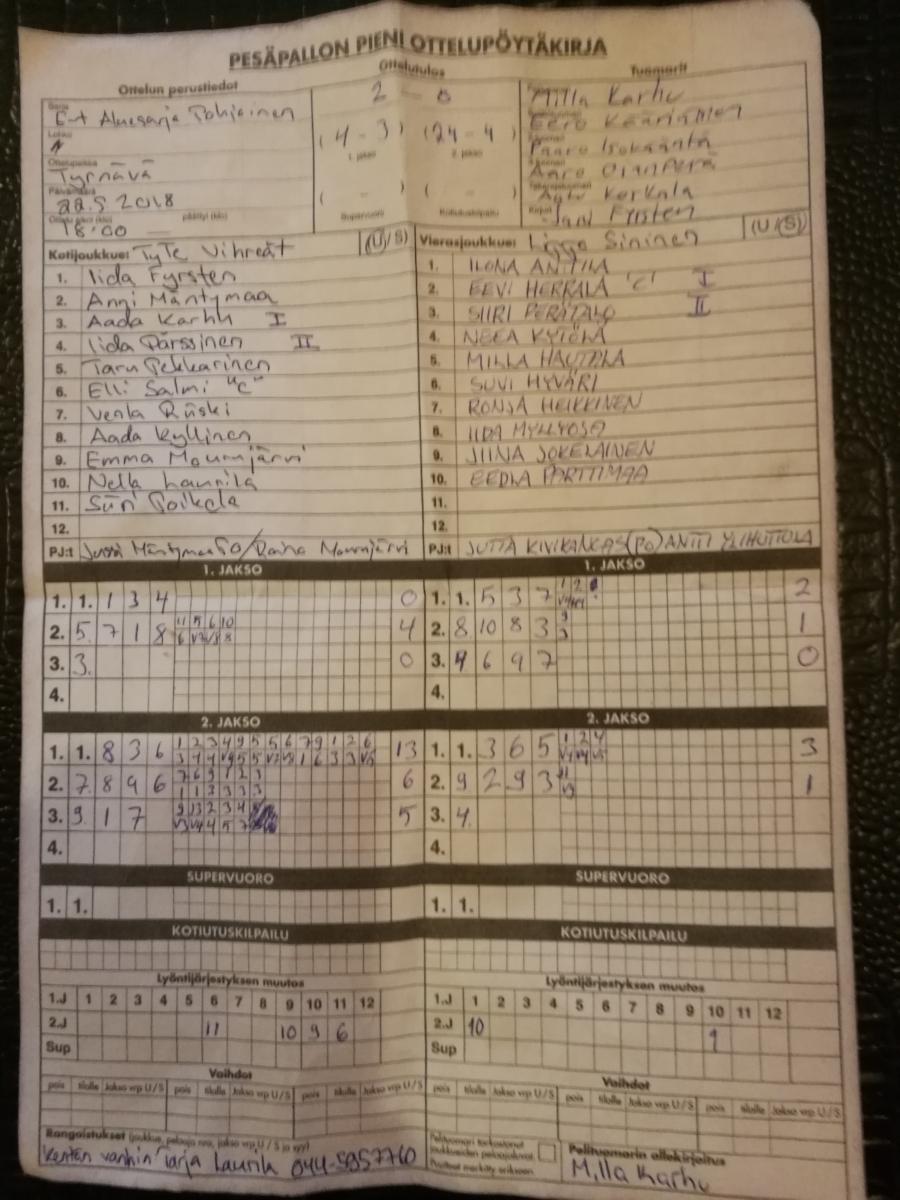 PESÄPALLON PIENI OTTELUPÖYTÄKIRJA
Ottelun perustiedot
Ottelutulos
Tuomarit
Sarja
E-t Aluesarja Pohjoinen
Lohko
2 - 0
(4 - 3) (24 - 4)
1. jakso 2. jakso
Ottelupaikka
Tyrnävä
Päivämäärä
22.5 2018
Ottelu alkoi (klo) päättyi (klo)
18:00
( - ) ( - )
Supervuoro Kotiutuskilpailu
Milla Karhu
Eero Kääriäinen
Paavo Isokääntä
Aaro Ojanperä
Kerkala
Jani Fyrsten
Kotijoukkue: TyTe Vihreät (U/S)
1. Iida Fyrsten
2. Anni Mäntymaa
3. Aada Karhu I
4. Iida Pärssinen II
5. Taru Pekkarinen
6. Elli Salmi "C"
7. Venla Riiski
8. Aada Kyllinen
9. Emma Mournjärvi
10. Nella Laurila
11. Siiri Poikela
12.
PJ:t Jussi Mäntymaa PO/Raiho Mournjärvi
Vierasjoukkue: Lippo Sininen (U/S)
1. ILONA ANTTILA
2. EEVI HERRALA 'C' I
3. SIIRI PERÄTALO II
4. NEEA KYTÖLÄ
5. MILLA HAUTALA
6. SUVI HYVÄRI
7. RONJA HEIKKINEN
8. IIDA MYLLYOJA
9. JIINA JOKELAINEN
10. EEDLA PORTTIMAA
11.
12.
PJ:t JUTTA KIVIKANGAS (PO) ANTTI YLIHUTTULA
1. JAKSO
1. 1. 1 3 4 0
2. 5 7 1 8 11 5 6 10 4
6 V7 V8 8
3. 3. 0
4.
1. JAKSO
1. 1. 5 3 7 1 2 2
2. 8 10 8 3 9 1
3
3. 4 6 9 7 0
4.
2. JAKSO
1. 1. 8 3 6 1 2 3 4 9 5 5 6 7 9 1 2 6 13
3 4 4 V9 5 5 V7 V8 1 6 3 3 V5
2. 7. 8 9 6 7 6 9 1 2 3 6
1 1 3 3 3 3
3. 9. 1 7 9 13 2 3 4 5
V3 V4 4 5 7
4.
2. JAKSO
1. 1. 3 6 5 1 2 4 3
V4 V4 V5
2. 9 2 9 3 11 1
V3
3. 4.
4.
SUPERVUORO
1. 1.
SUPERVUORO
1. 1.
KOTIUTUSKILPAILU
KOTIUTUSKILPAILU
Lyöntijärjestyksen muutos
1.J 1 2 3 4 5 6 7 8 9 10 11 12
2.J 11 10 9 6
Sup
Lyöntijärjestyksen muutos
1.J 1 2 3 4 5 6 7 8 9 10 11 12
2.J 10 1
Sup
Vaihdot
pois tilalle Jakso vrp U/S pois tilalle Jakso vrp U/S pois tilalle Jakso vrp U/S
Vaihdot
pois tilalle Jakso vrp U/S pois tilalle Jakso vrp U/S pois tilalle Jakso vrp U/S
Rangaistukset (joukkue, pelaaja nro, jakso vrp U/S ja syy)
Kentän vanhin Tarja Laurila 044-5957760
Pelituomari tarkastanut
joukkueiden pelaajaluvat
Puutteet merkitty erikseen
Pelituomarin allekirjoitus
Milla Karhu